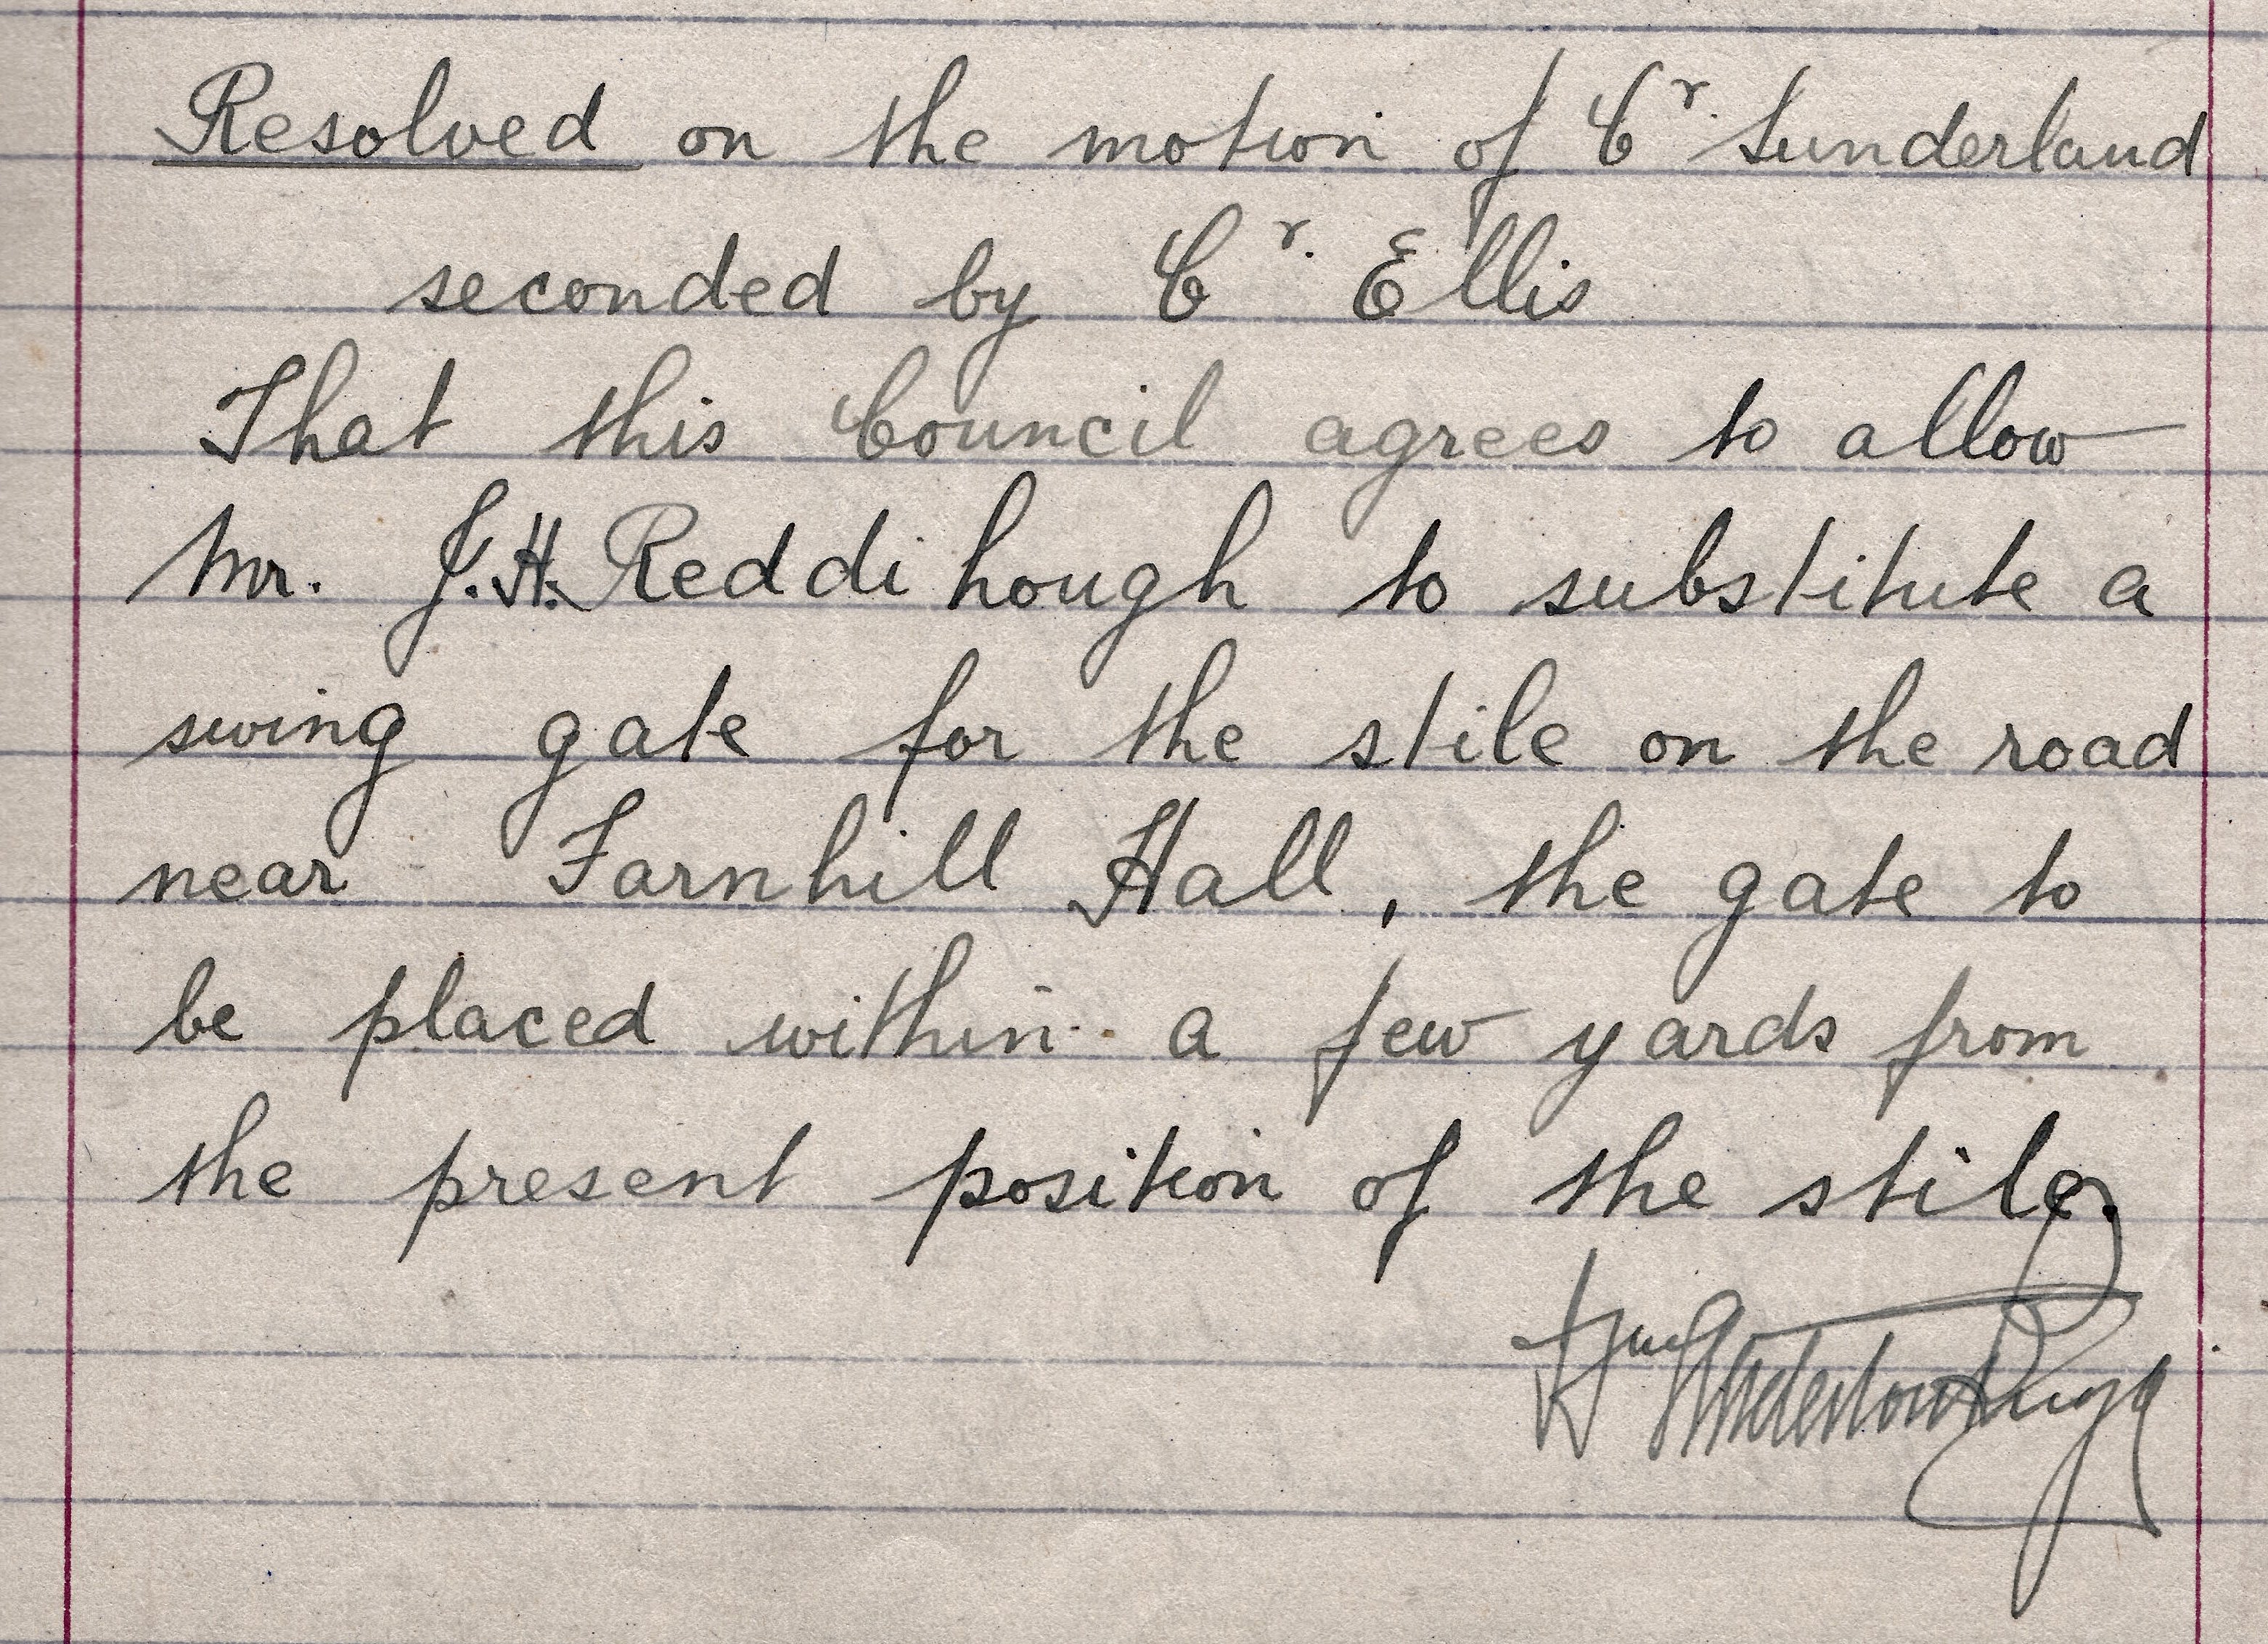 Resolved on the motion of Cr. Sunderland
seconded by Cr. Ellis
That this Council agrees to allow
Mr. J.H. Reddihough to substitute a
swing gate for the stile on the road
near Farnhill Hall, the gate to
be placed within a few yards from
the present position of the stile.